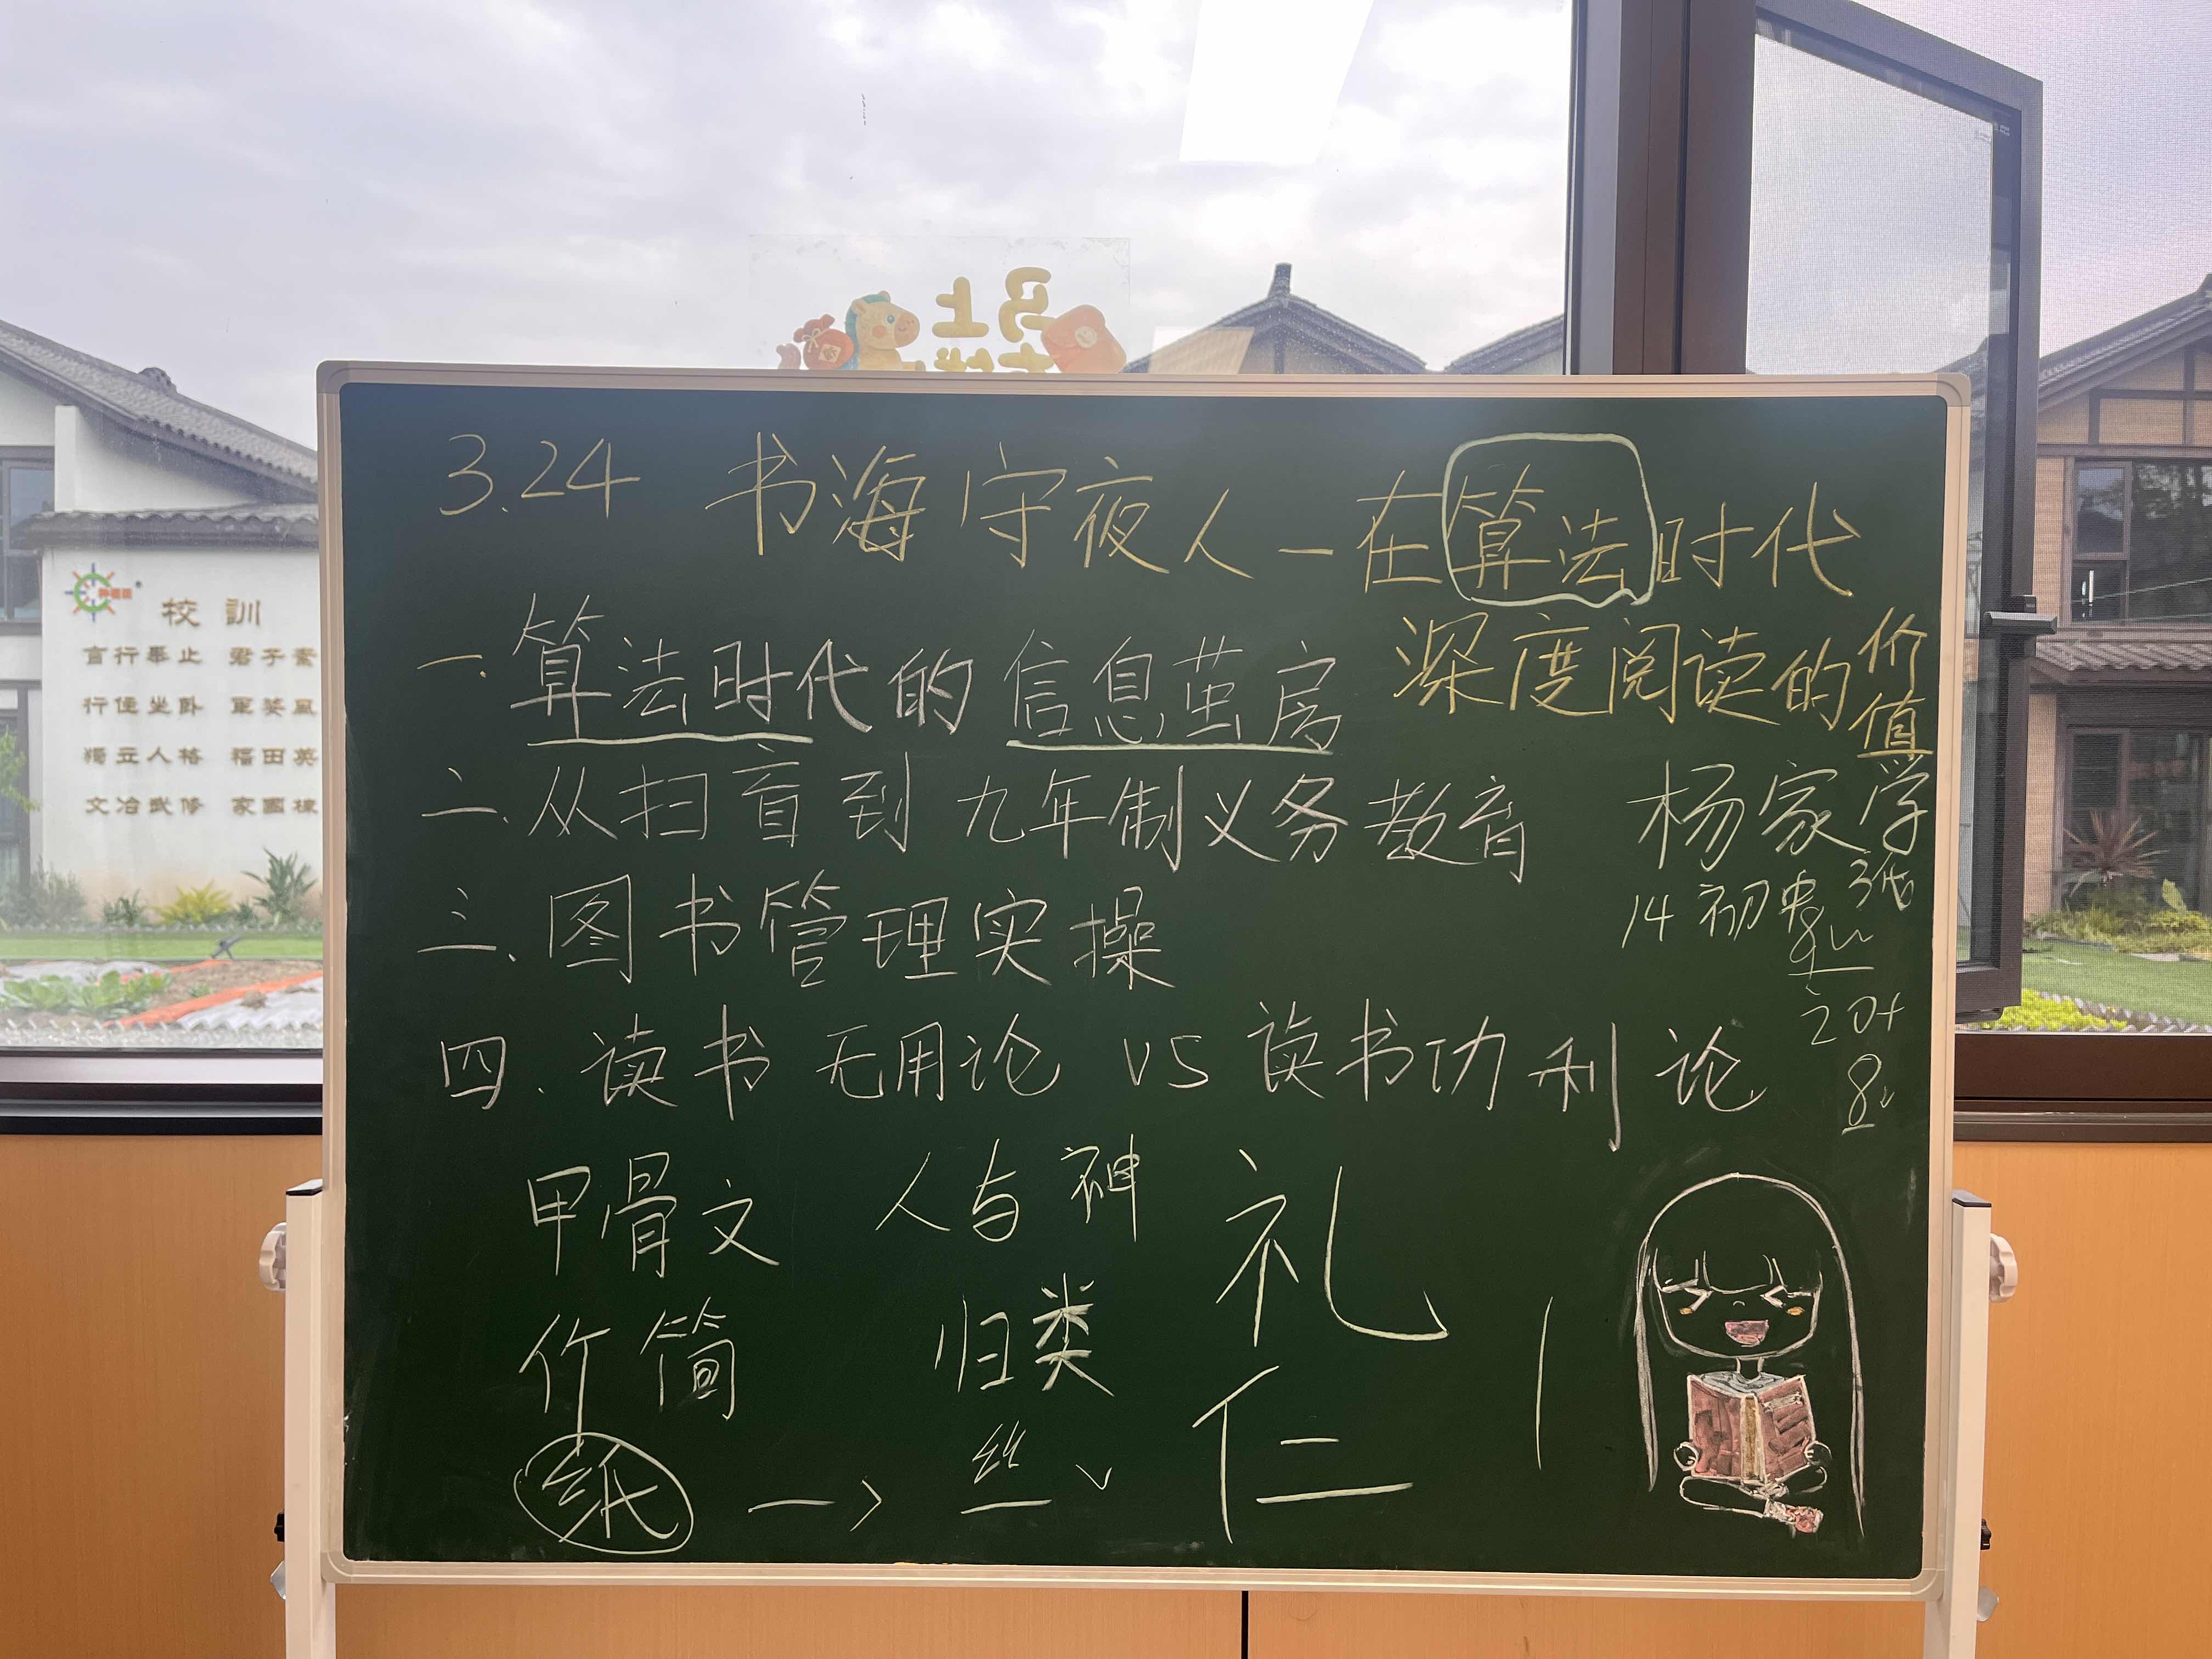 马上
校訓
言行举止 君子素
行住坐卧 軍姿風
獨立人格 福田英
文治武修 家國棟
3.24 书海守夜人—在算法时代
深度阅读的价值
一.算法时代的信息茧房
二.从扫盲到九年制义务教育
杨家学
3代
14 初中
三.图书管理实操
20+
四.读书无用论 VS 读书功利论
甲骨文 人与神 礼
竹简 归类 仁
纸 —> 丝